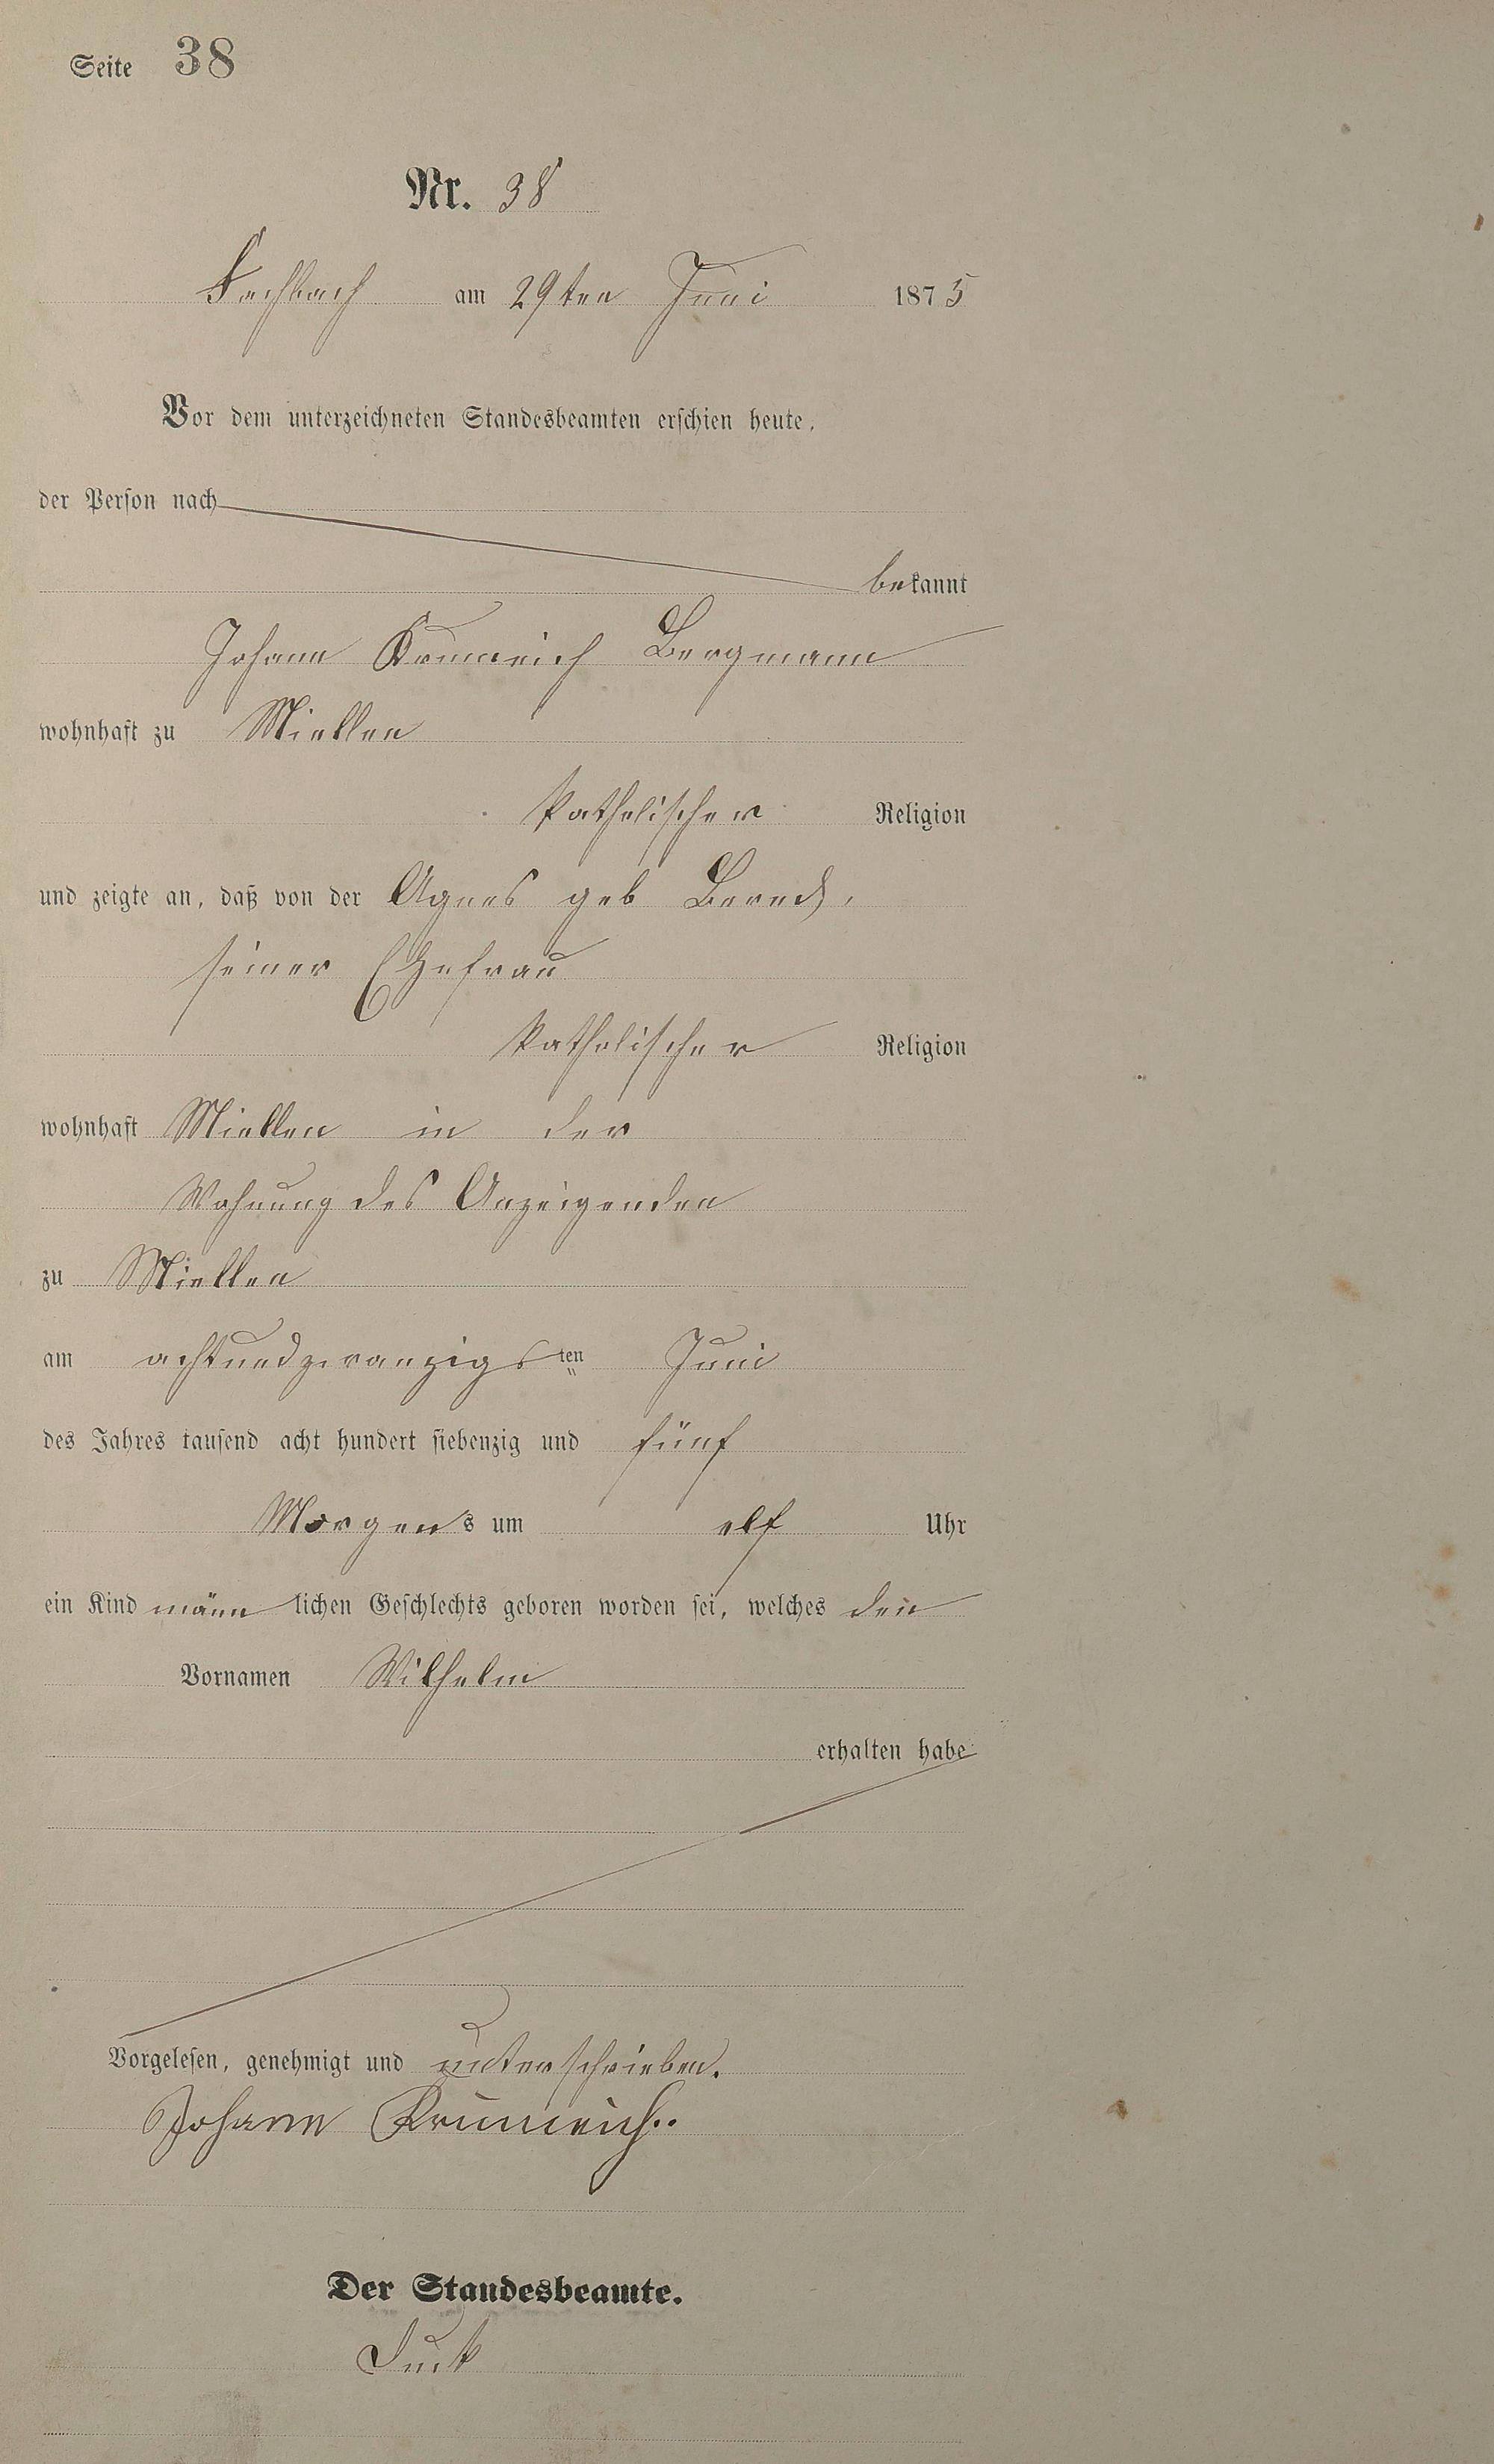 Seite 38
Nr. 38
Fachbach am 29ten Juni 1875
Vor dem unterzeichneten Standesbeamten erschien heute,
der Person nach
bekannt
Johann Krumeich Bergmann
wohnhaft zu Miellen
katholischer Religion
und zeigte an, daß von der Agnes geb
seiner Ehefrau
katholischer Religion
wohnhaft Miellen in der
Wohnung des Anzeigenden
zu Miellen
am achtundzwanzigsten Juni
des Jahres tausend acht hundert siebenzig und fünf
Morgens um elf Uhr
ein Kind männlichen Geschlechts geboren worden sei, welches den
Vornamen Wilhelm
erhalten habe
Vorgelesen, genehmigt und unterschrieben.
Johann Krumeich
Der Standesbeamte.